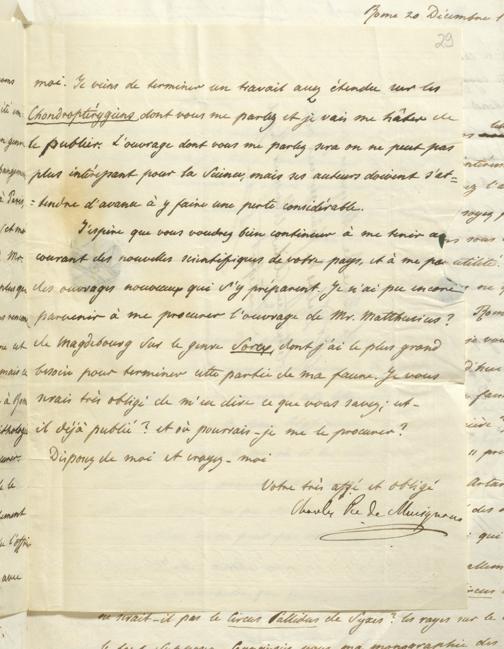 Rome 20 Décembre 1
29
moi. Je viens de terminer un travail assez étendu sur les
Chondroptérygiens dont vous me parlez et je vais me hâter de
le publier. L'ouvrage dont vous me parlez sera on ne peut pas
plus intéressant pour la Science, mais ses auteurs doivent s'at=
=tendre d'avance à y faire une perte considérable.
J'espère que vous voudrez bien continuer à me tenir au
courant des nouvelles scientifiques de votre pays, et à me
des ouvrages nouveaux qui s'y préparent. Je n'ai pu encore
parvenir à me procurer l'ouvrage de Mr. Matthusius?
de Magdebourg sur le genre Sorex, dont j'ai le plus grand
besoin pour terminer cette partie de ma faune. Je vous
serais très obligé de m'en dire ce que vous savez; est-
il déjà publié? et où pourrais-je me le procurer?
Disposez de moi et croyez-moi
Votre très affé et obligé
Charles Pce de Musignano
ne serait-il pas le Circus Pallidus de Sykes? les rayes sur le
ma monographie des